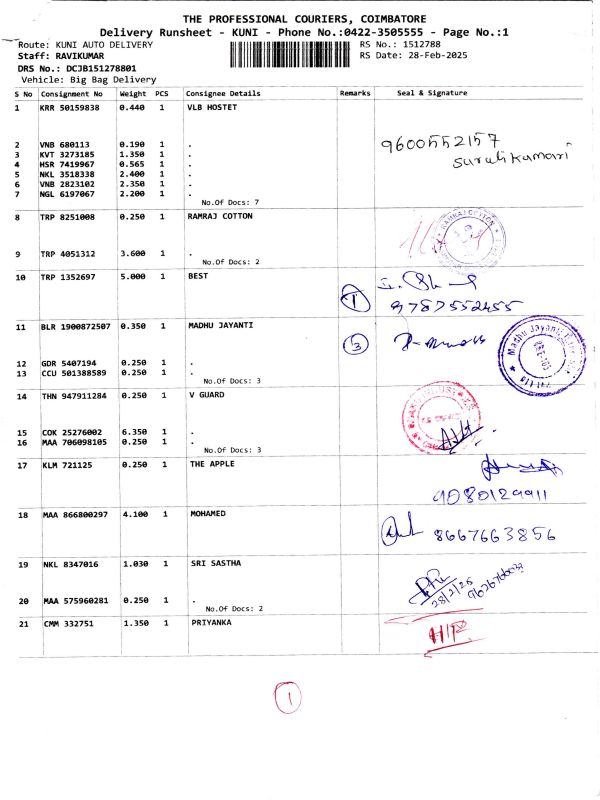 THE PROFESSIONAL COURIERS, COIMBATORE
Delivery Runsheet - KUNI - Phone No.:0422-3505555 - Page No.:1
Route: KUNI AUTO DELIVERY RS No.: 1512788
Staff: RAVIKUMAR RS Date: 28-Feb-2025
DRS No.: DCJB151278801
Vehicle: Big Bag Delivery
S No Consignment No Weight PCS Consignee Details Remarks Seal & Signature
1 KRR 50159838 0.440 1 VLB HOSTET
2 VNB 680113 0.190 1 . 9600552157
3 KVT 3273185 1.350 1 . Suruti Kumari
4 HSR 7419967 0.565 1 .
5 NKL 3518338 2.400 1 .
6 VNB 2823102 2.350 1 .
7 NGL 6197067 2.200 1 .
No.Of Docs: 7
8 TRP 8251008 0.250 1 RAMRAJ COTTON
RAMRAJ COTTON
9 TRP 4051312 3.600 1 .
No.Of Docs: 2
10 TRP 1352697 5.000 1 BEST
1 9787552455
11 BLR 1900872507 0.350 1 MADHU JAYANTI
3
Madhu Jayanti
12 GDR 5407194 0.250 1 .
13 CCU 501388589 0.250 1 .
No.Of Docs: 3
14 THN 947911284 0.250 1 V GUARD
15 COK 25276002 6.350 1 .
16 MAA 706098105 0.250 1 .
No.Of Docs: 3
17 KLM 721125 0.250 1 THE APPLE
9080129911
18 MAA 866800297 4.100 1 MOHAMED
8667663856
19 NKL 8347016 1.030 1 SRI SASTHA
28/2/25
20 MAA 575960281 0.250 1 .
No.Of Docs: 2
21 CMM 332751 1.350 1 PRIYANKA
1